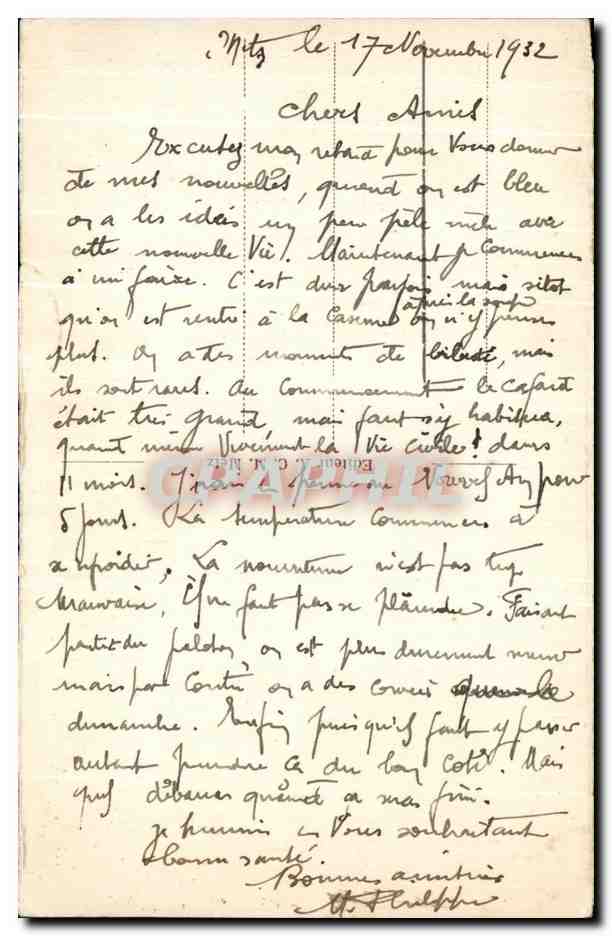 Metz le 17 Novembre 1932
Chers Amis
Excusez mon retard pour Vous donner
de mes nouvelles, quand on est bleu
on a les idées un peu pèle mèle avec
cette nouvelle Vie. Maintenant je Commence
à mi faire. C'est dur parfois mais sitot
qu'on est rentré à la Caserne après la soupe on n'y pense
plus. on a des moments de , mais
ils sont rares. Au Commencement le cafard
était très grand, mais faut s'y habituer,
quand même Vivement la Vie Civile! dans
11 mois. J'irai en permission Nouvel An pour
5 jours. La température commence à
se refroidir. La nourriture n'est pas trop
Mauvaise, il ne faut pas se plaindre. Faisant
partie du peloton, on est plus durement mené
mais par Contre on a des corvées que le
dimanche. Enfin puisqu'il faut y passer
autant prendre ça du bon coté. Mais
quel débarras quand ça sera fini.
Je termine en Vous souhaitant
bonne santé.
Bonnes amitiés
Editeur A. C. M. Metz
CPAPHIL